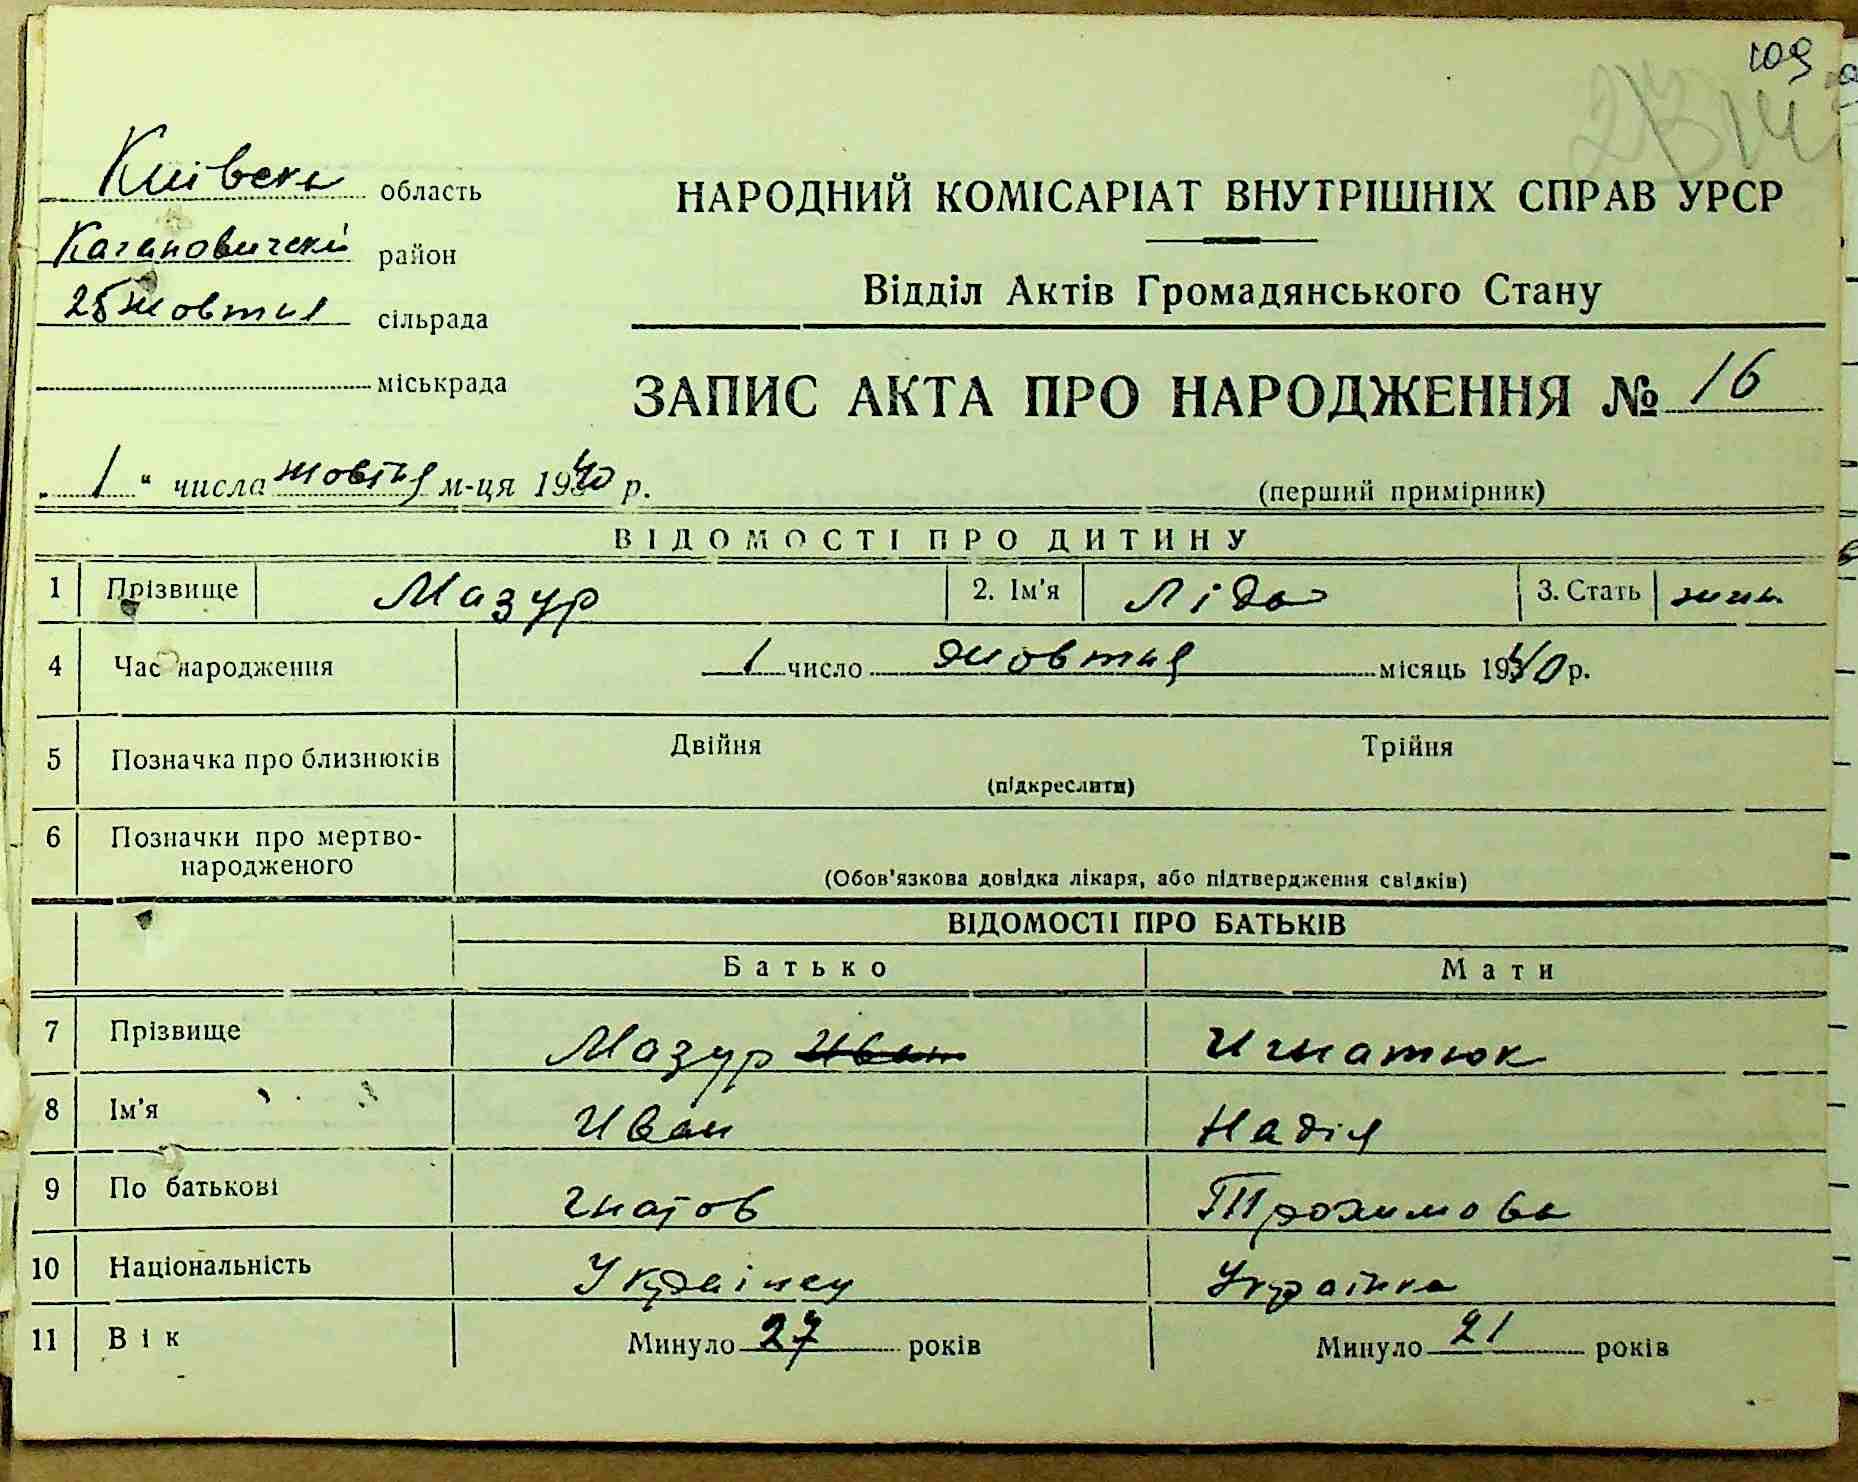 109
Київська область
НАРОДНИЙ КОМІСАРІАТ ВНУТРІШНІХ СПРАВ УРСР
Кагановичский район
Відділ Актів Громадянського Стану
25 жовтня сільрада
міськрада
ЗАПИС АКТА ПРО НАРОДЖЕННЯ № 16
„ 1 “ числа жовтня м-ця 1940 р.
(перший примірник)
ВІДОМОСТІ ПРО ДИТИНУ
1 Прізвище Мазур 2. Ім'я Ліда 3. Стать жин.
4 Час народження 1 число жовтня місяць 1940 р.
5 Позначка про близнюків Двійня Трійня
(підкреслити)
6 Позначки про мертво-
народженого
(Обов'язкова довідка лікаря, або підтвердження свідків)
ВІДОМОСТІ ПРО БАТЬКІВ
Батько Мати
7 Прізвище Мазур Иван Игнатюк
8 Ім'я Иван Надія
9 По батькові Гнатов Трохимова
10 Національність Украінец Українка
11 Вік Минуло 27 років Минуло 21 років